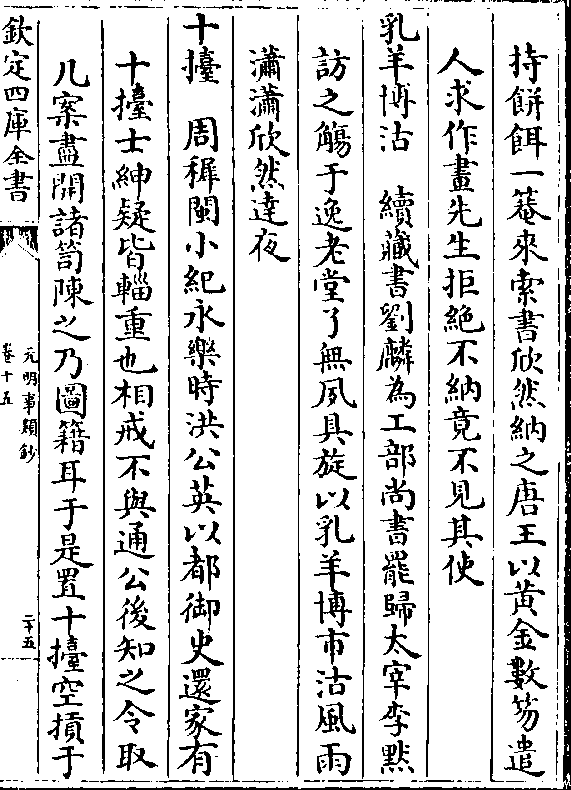 持餅餌一菴來索書欣然納之唐王以黃金數笏遣
人求作畫先生拒絶不納竟不見其使
乳羊博沽　續藏書劉麟為工部尚書罷歸太宰李黙
訪之觴于逸老堂了無夙具旋以乳羊博市沽風雨
瀟瀟欣然達夜
十擡　周穉閩小紀永樂時洪公英以都御史還家有
十擡士紳疑皆輜重也相戒不與通公後知之令取
几案盡開諸笥陳之乃圖籍耳于是置十擡空損于
欽定四庫全書
元明事類鈔
卷十五
二十五